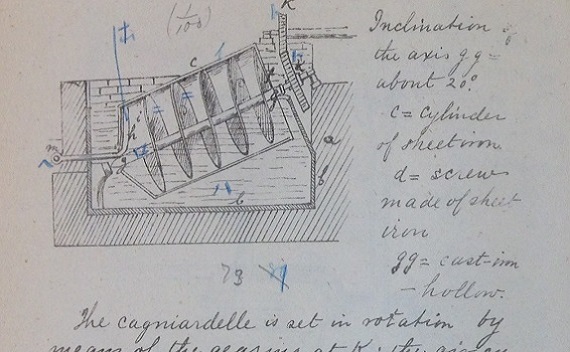 (1/100)
K
c
h
m
g
a
f
b
73
Inclination of
the axis gg =
about 20°.
c = cylinder
of sheet iron
d = screw
made of sheet
iron
gg = cast-iron
- hollow.
The cagniardelle is set in rotation by
means of the gearing at K; the